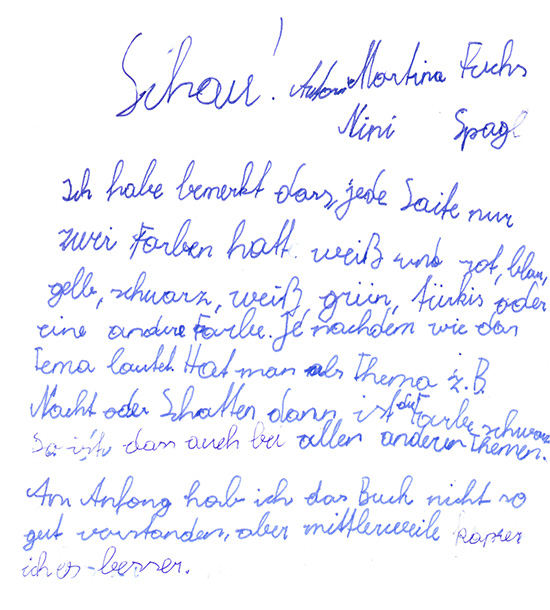 Schau! Autorin Martina Fuchs
Nini Spagl
Ich habe bemerkt dass, jede Saite nur
zwei Farben hatt. weiß und rot, blau,
gelb, schwarz, weiß, grün, türkis oder
eine andere Farbe. Je nachdem wie das
Tema lautet. Hat man als Thema z.B.
Nacht oder Schatten dann ist die Farbe schwarz
So ist's dan auch bei allen anderen Themen.
Am Anfang hab ich das Buch nicht so
gut verstanden, aber mittlerweile kapier
ich es besser.